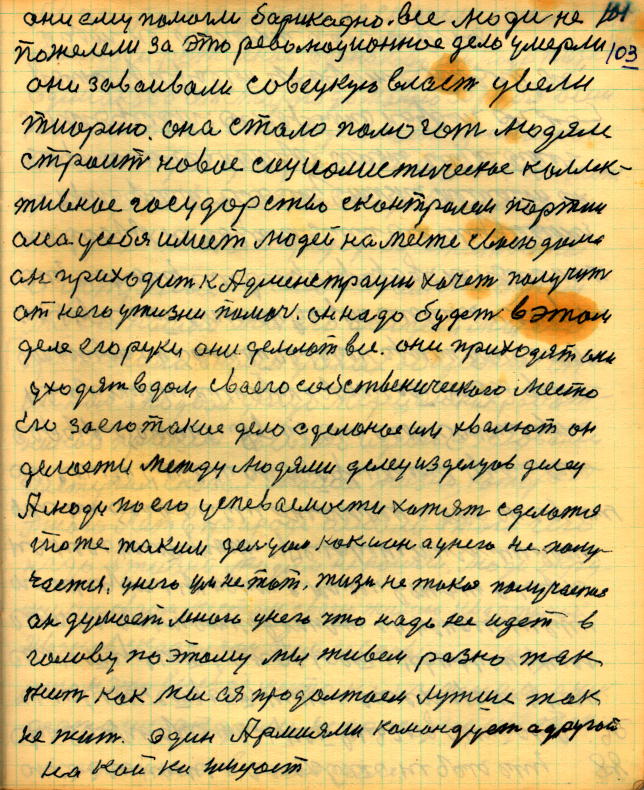 они ему помогли барикадно. все люди не 101
пожелели за это революционное дело умерли 103
они заваивали совецкую власт увели
тиорию. она стало помогат людям
строит новое социолистическое коллек-
тивное государство сконтролем партии
она усебя имеет людей на месте своего дома
он приходит к Адменстрации хочет получит
от него ужизни помоч. он надо будет в этом
деле его руки они делоют все. они приходят они
уходят в дом сваего собственического место
Его за его такое дело сделоное им хвалют он
между людями делец из делцов делец
А люди по его успеваемости хотят сделатся
тоже таким делцом как и он а унего не полу-
чается, унего ум не тот. жизн не такоя получается
он думоет много унего что надо не идет в
голову поэтому мы живем разно так
жит как мы ея продолжаем лутше так
не жит. один Армиями командует а другой
на кой ки